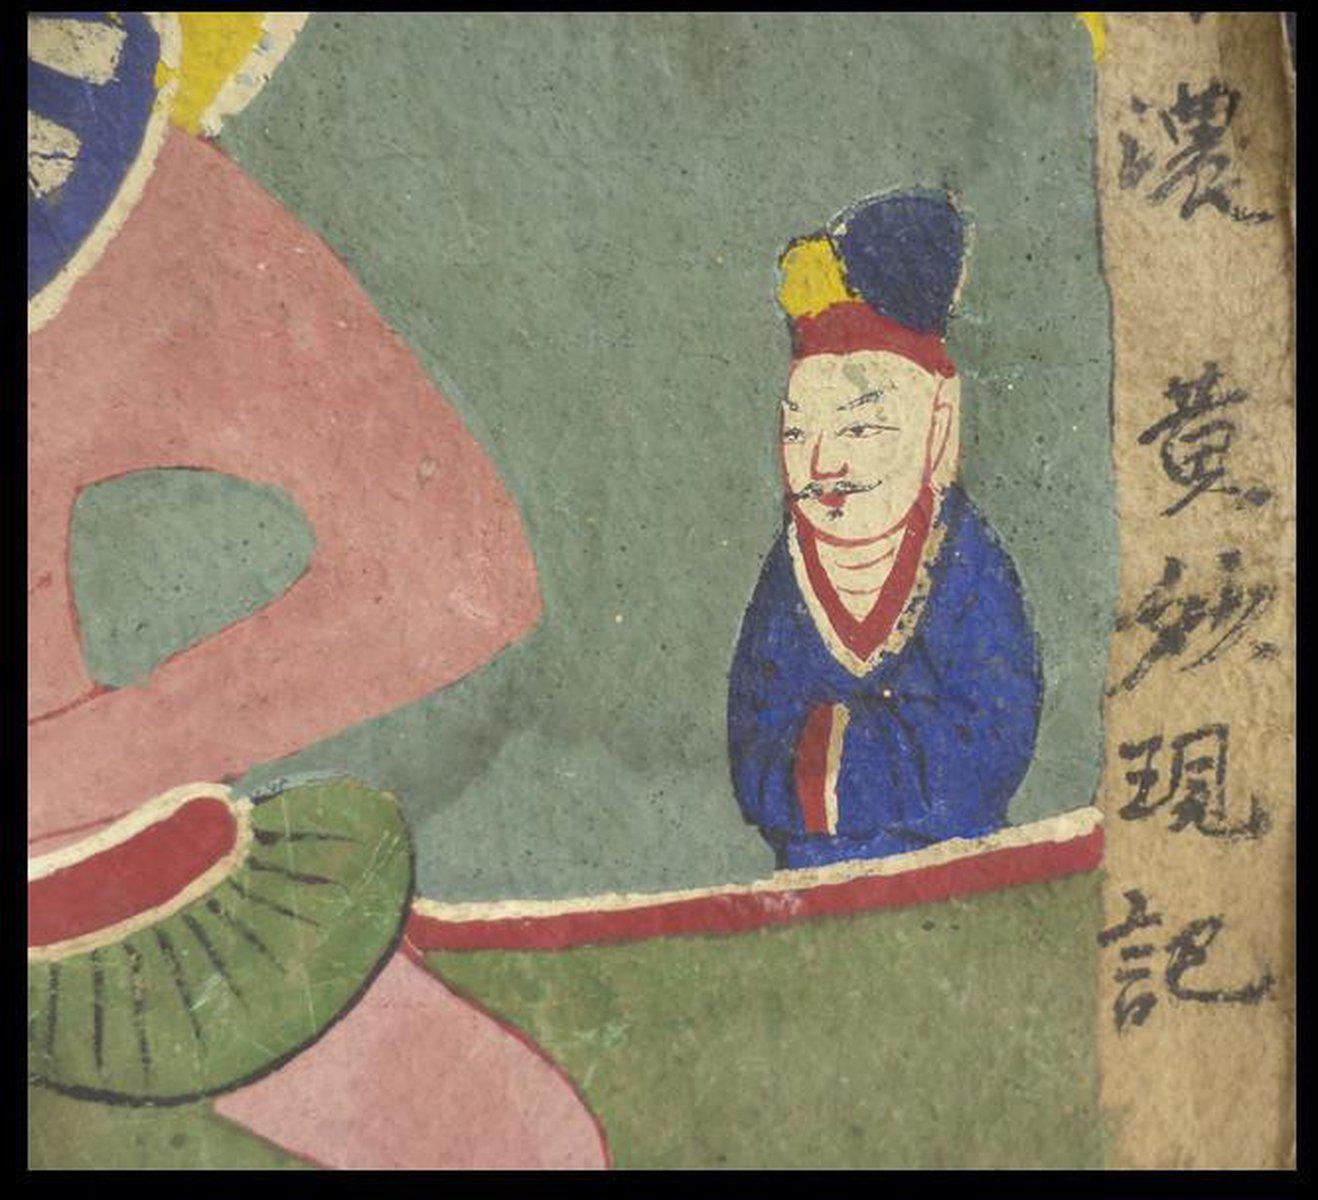 濃黄妙現記